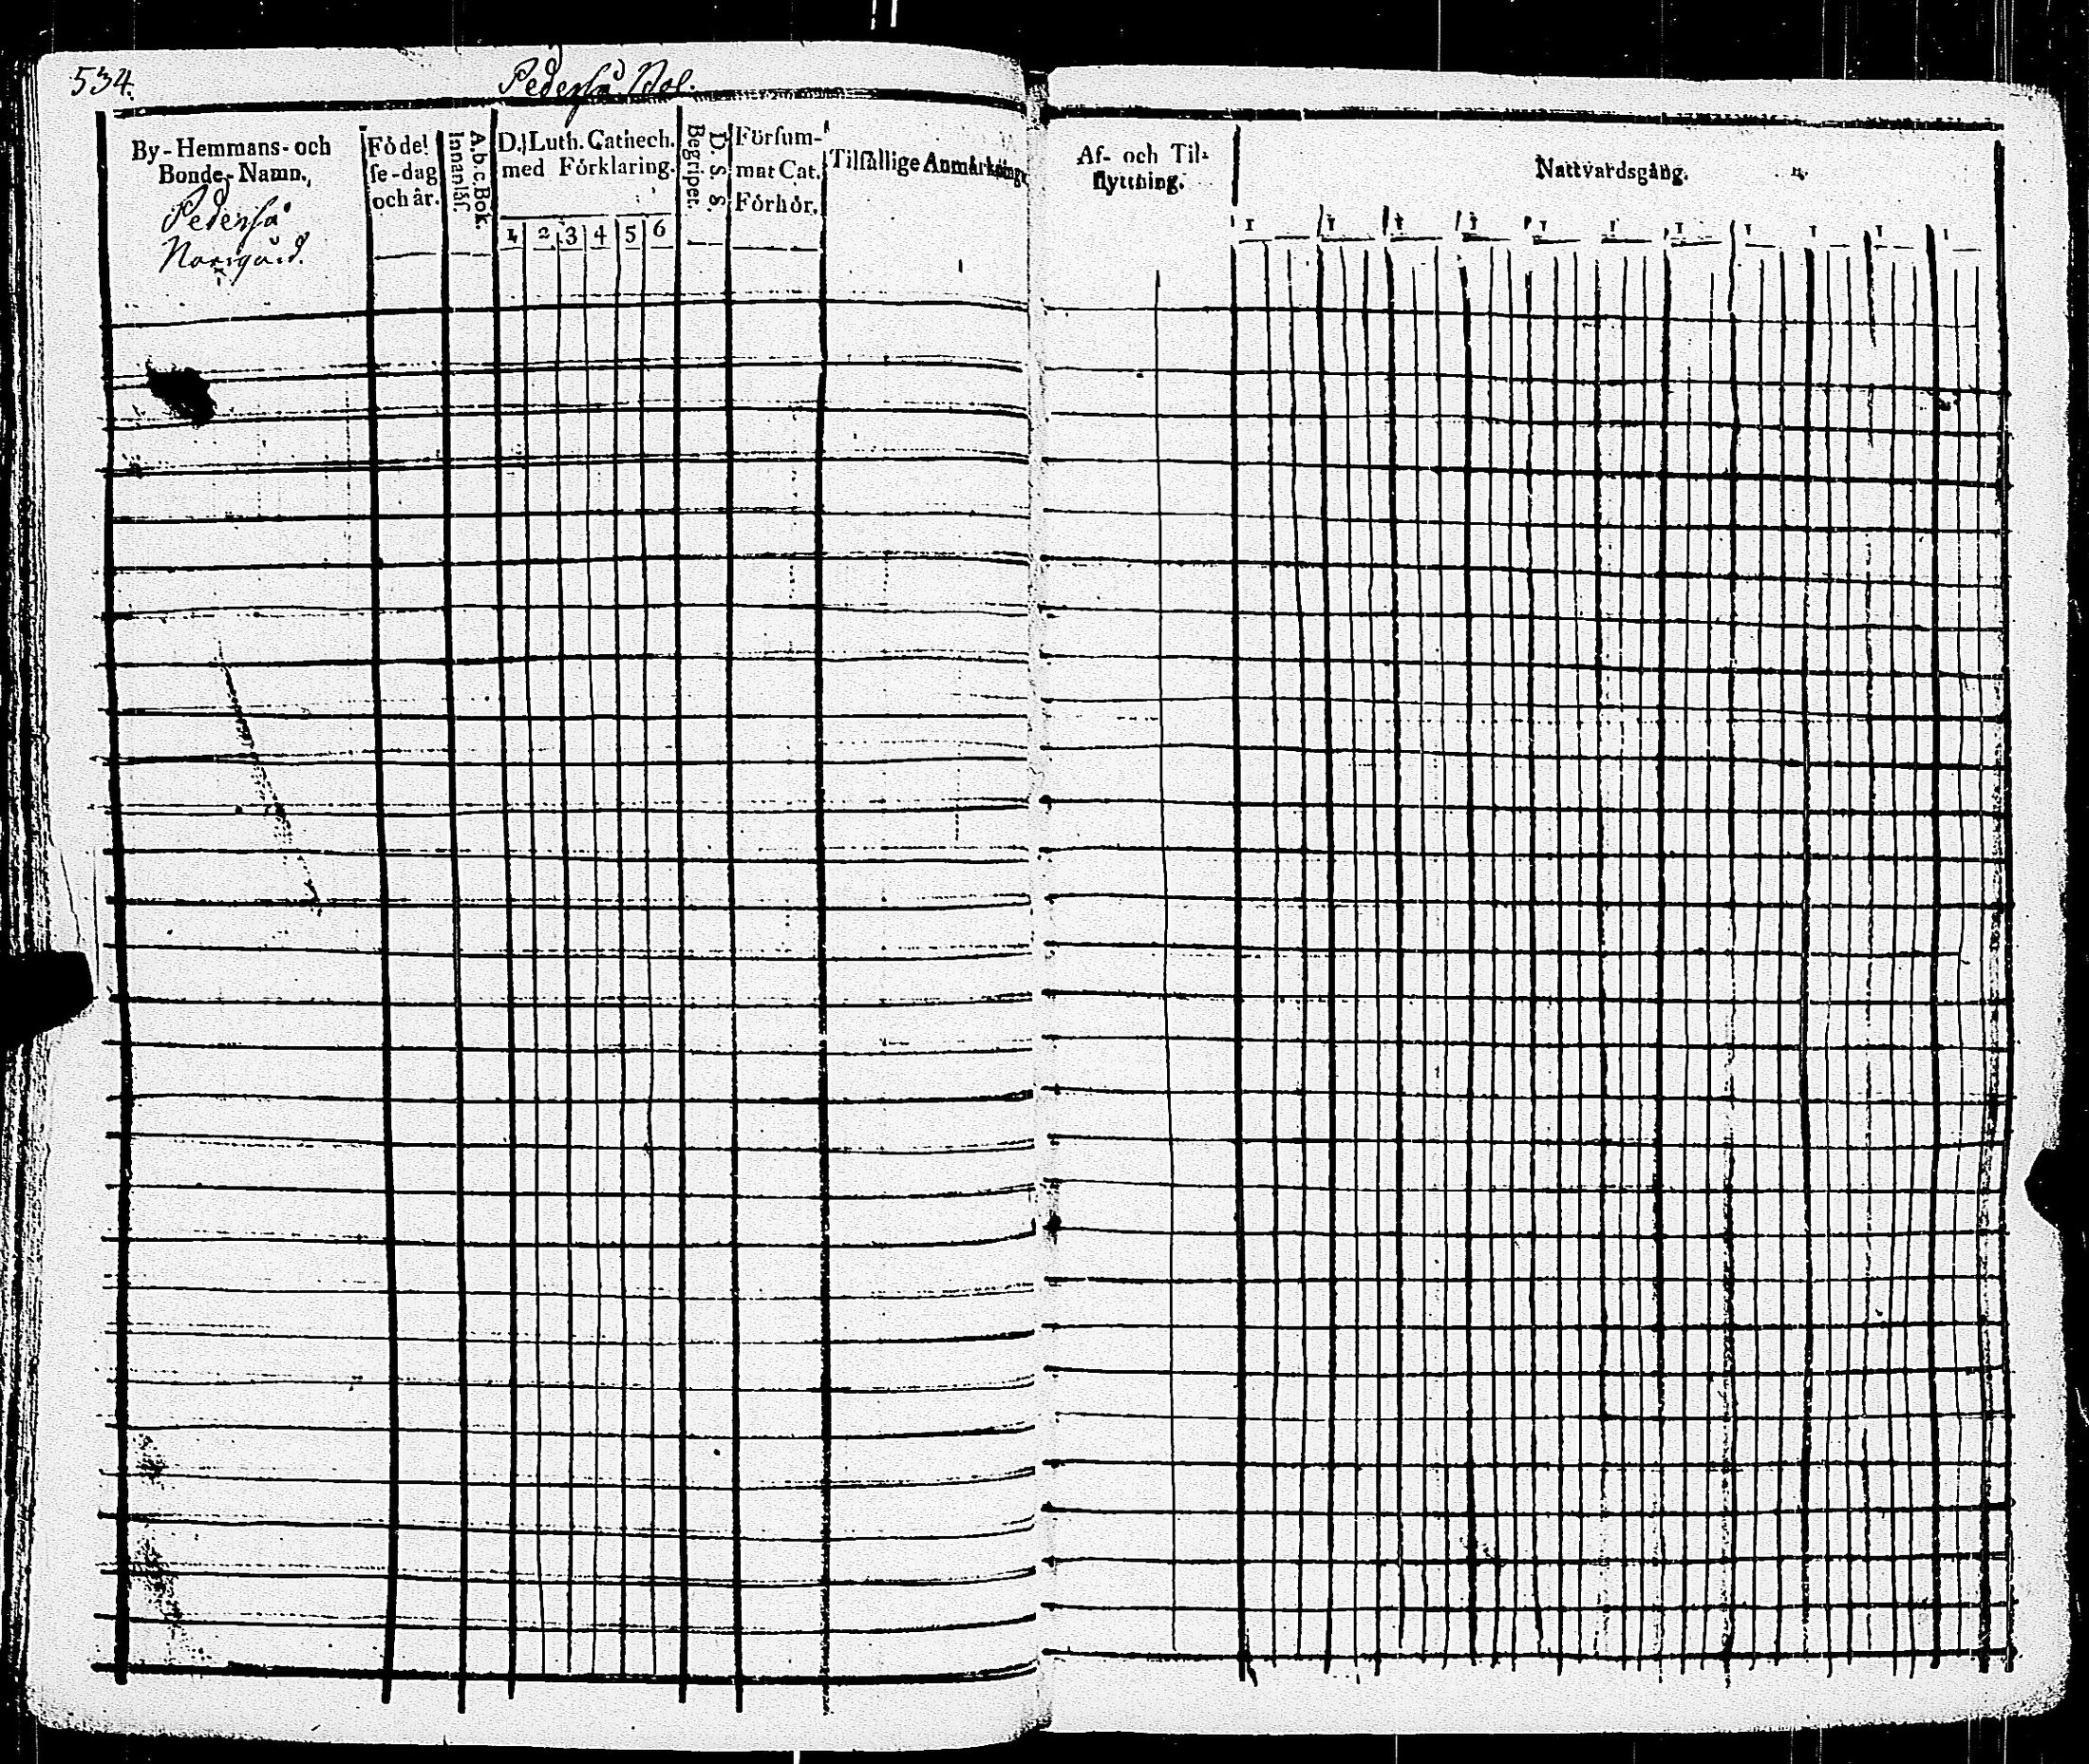 534.
Pederså Bol.
By-Hemmans- och
Bonde-Namn.
Pederså
Norrgård.
Födel
se-dag
och år.
A.b.c.Bok.
Innanläs.
D. Luth. Cathech.
med Förklaring.
1 2 3 4 5 6
D. S. S.
Begriper.
Försum-
mat Cat.
Förhör.
Tilfällige Anmärkningar
Af- och Til-
flyttning.
Nattvardsgång.
1 1 1 1 1 1 1 1 1 1 1